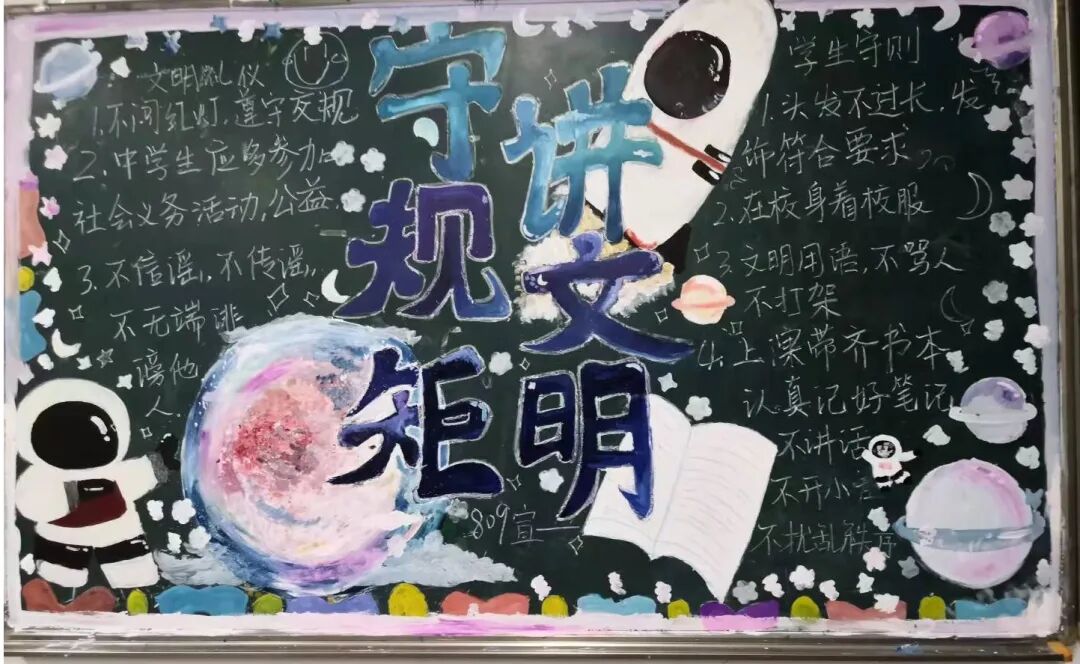 文明礼仪
1.不闯红灯,遵守交规
2.中学生应多参加
社会义务活动,公益
3.不信谣,不传谣,
不无端诽
谤他
人.
守规矩
讲文明
809宣
学生守则
1.头发不过长,发
饰符合要求
2.在校身着校服
3.文明用语,不骂人
不打架
4.上课带齐书本
认真记好笔记
不讲话
不开小
不扰乱秩序